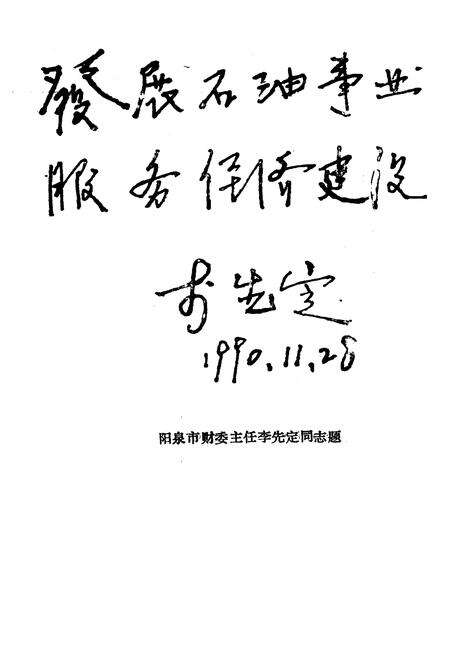 發展石油事业
服务经济建设
李先定
1990.11.28
阳泉市财委主任李先定同志题